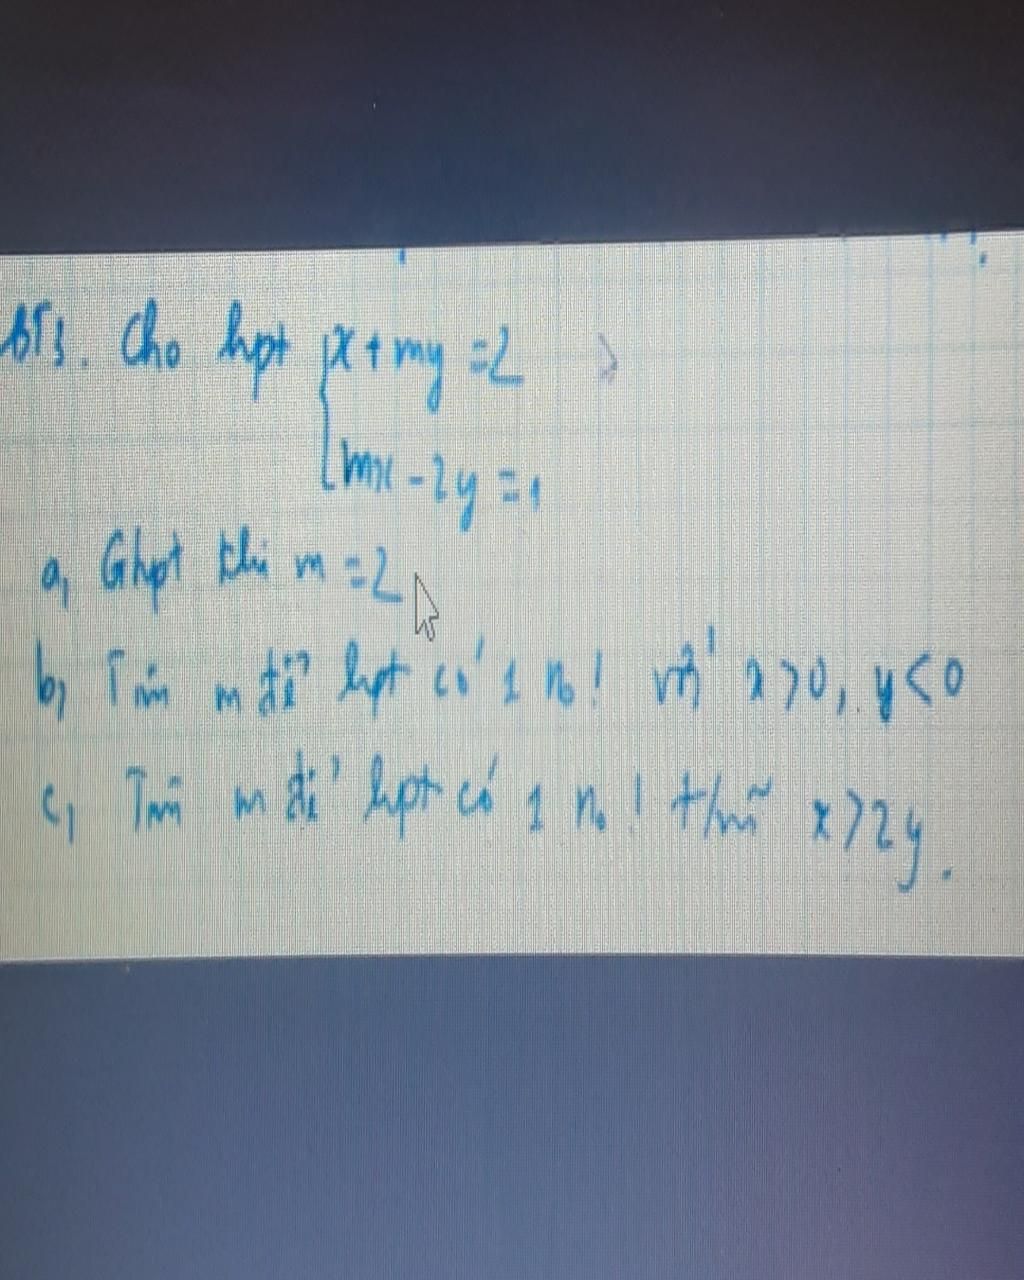 BT3. Cho hpt { x + my = 2
mx - 2y = 1
a, Ghpt khi m = 2
b, Tìm m để hpt có 1 no! với x > 0, y < 0
c, Tìm m để hpt có 1 no! t/mãn x > 2y.